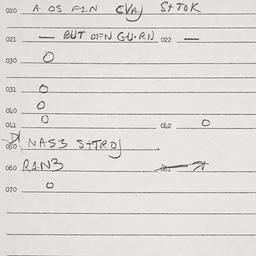 020 A OS FIN CVAJ STTOK
021 — BUT OFN GU·RN 022 —
030 O
031 O
040 O
041 O 042 O
050 NAS3 STTROJ
060 RIN3
070 O